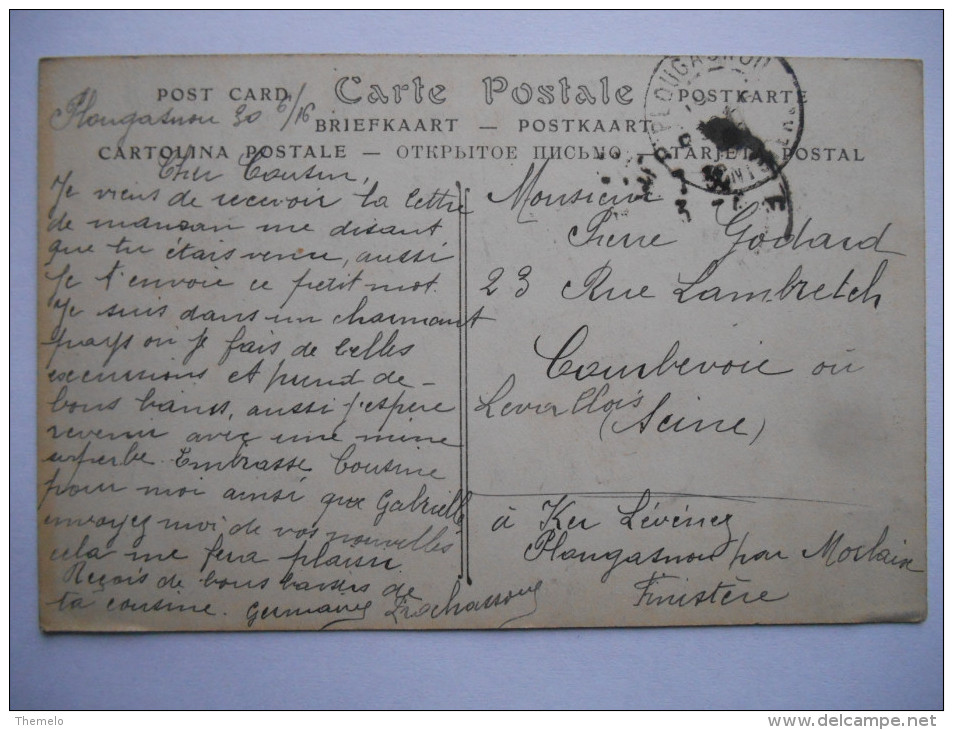 POST CARD Carte Postale POSTKARTE
BRIEFKAART — POSTKAART
CARTOLINA POSTALE — ОТКРЫТОЕ ПИСЬМО — TARJETA POSTAL
PLOUGASNOU
Plougasnou 30 6/16
Cher Cousin,
Je viens de recevoir la lettre
de maman me disant
que tu étais venu, aussi
Je t'envoie ce petit mot.
Je suis dans un charmant
pays ou je fais de belles
excursions et prend de
bons bains, aussi j'espère
revenir avec une mine
superbe. Embrasse Cousine
pour moi ainsi que Gabrielle
envoyez moi de vos nouvelles
cela me fera plaisir.
Reçois de bons baisers de
ta cousine. Germaine
Monsieur
Pierre Godard
23 Rue Lambretch
Courbevoie ou
Levallois
(Seine)
à Ker Lévénez
Plougasnou par Morlaix
Finistère
Themelo
http://www.delcampe.net